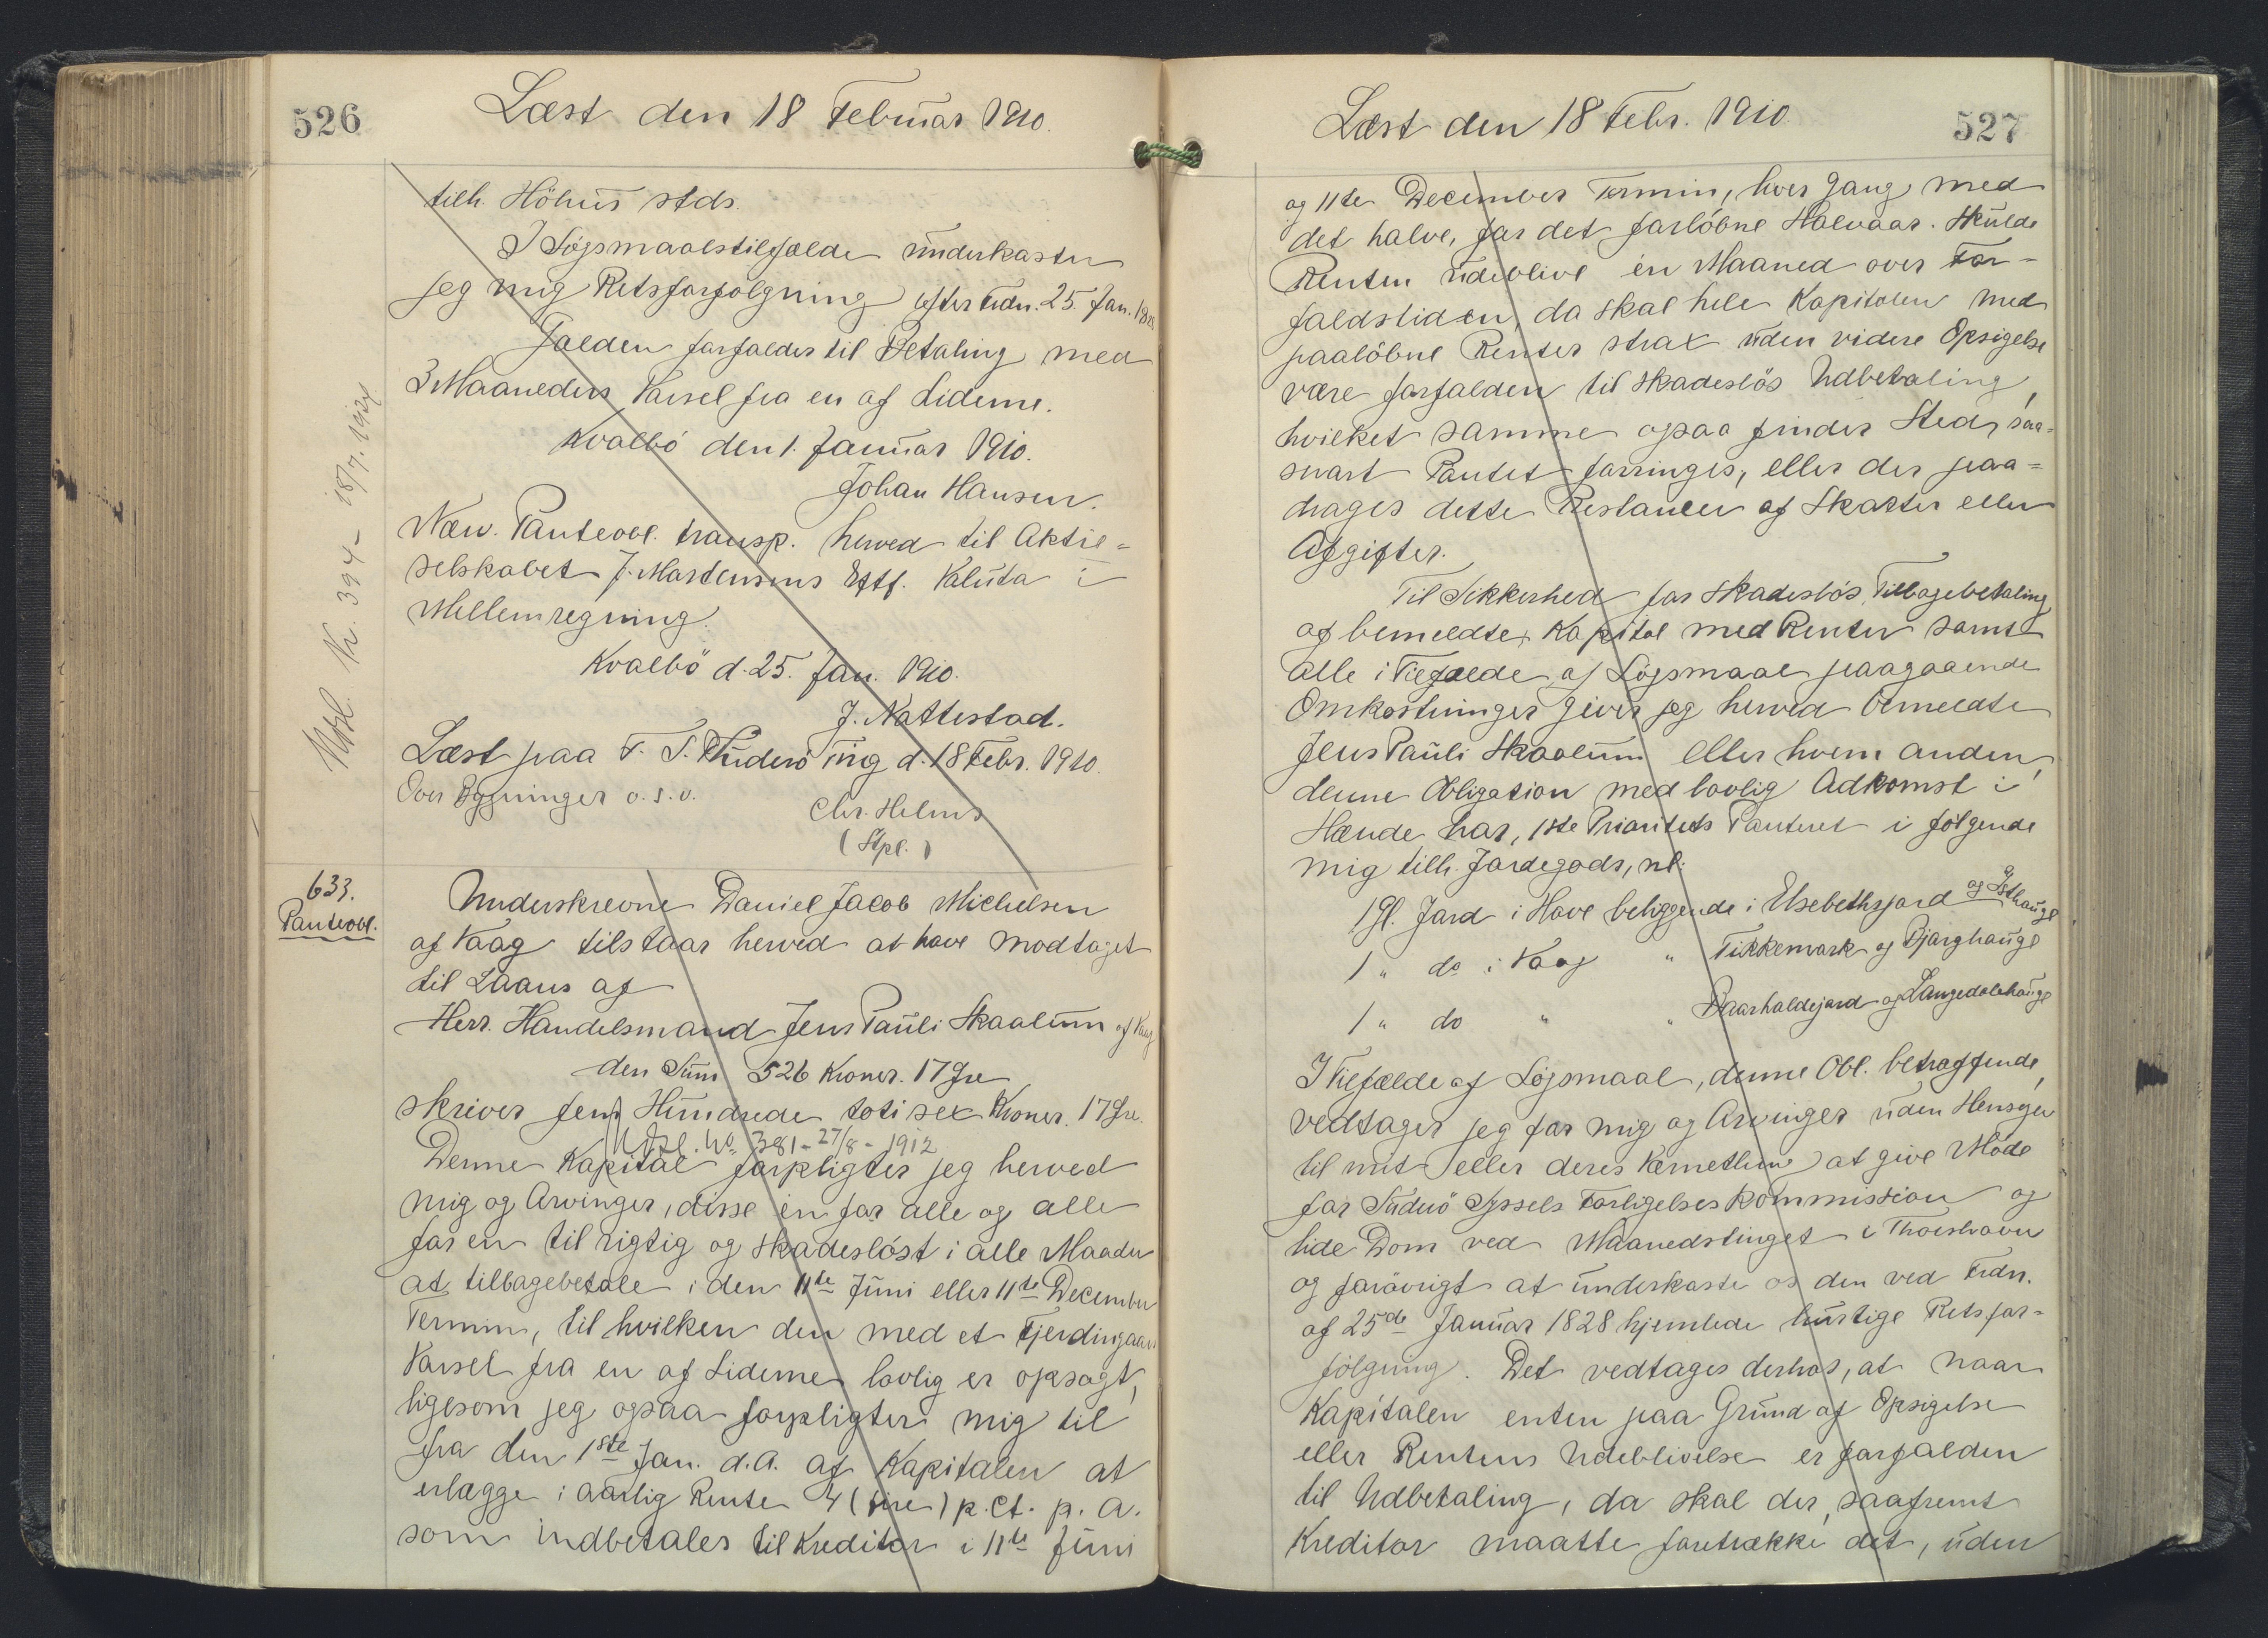 526
Læst den 18 Februar 1910.
tilh. Höhus stds.
I Søgsmaalstilfælde underkaster
jeg mig Retsforfølgning efter Frdn. 25. Jan. 1828
Gælden forfalder til Betaling med
3 Maaneders Varsel fra en af Siderne.
Kvalbø den 1. Januar 1910.
Johan Hansen.
Næv. Panteobl. transp. herved til Aktie=
selskabet J. Mortensens Eftf. Valuta i
Mellemregning.
Kvalbö d. 25. Jan. 1910.
J. Nattestad.
Læst paa F. S. Suderö Ting d. 18 Febr. 1910.
Over Bygninger o.s.v.
Chr. Helms
(Stpl.)
Udsl. Nr. 394 - 18/7. 1934
633.
Panteobl.
Underskrevne Daniel Jacob Michelsen
af Vaag tilstaar herved at have modtaget
til Laans af
Herr. Handelsmand Jens Pauli Skaalum af Vaag
den Sum 526 Kroner. 17 Øre
skriver fem Hundrede toti sex Kroner. 17 Øre.
Udsl. No. 381 - 27/8 - 1912
Denne Kapital forpligter jeg herved
mig og Arvinger, disse en for alle og alle
for en til rigtig og skadesløst i alle Maader
at tilbagebetale i den 11te Juni eller 11te December
Termin, til hvilken den med et Fjerdingaars
Varsel fra en af Siderne lovlig er opsagt,
ligesom jeg ogsaa forpligter mig til
fra den 1ste Jan. d.A. af Kapitalen at
erlægge i aarlig Rente 4 (fire) p.Ct. p. A.
som indbetales til Kreditor i 11te Juni
Læst den 18 Febr. 1910
527
og 11te December Termin, hver Gang med
det halve, for det forløbne Halvaar. Skulde
Renten udeblive én Maaned over For-
faldstiden, da skal hele Kapitalen med
paaløbne Renter strax uden videre Opsigelse
være forfalden til skadesløs Udbetaling,
hvilket samme ogsaa finder Sted, saa=
snart Pantet forringes, eller der paa=
drages dette Restancer af Skatter eller
Afgifter.
Til Sikkerhed for skadesløs Tilbagebetaling
af bemeldte Kapital med Renter samt
alle i Tilfælde af Søgsmaal paagaaende
Omkostninger giver jeg herved bemeldte
Jens Pauli Skaalum eller hvem anden,
denne Obligation med lovlig Adkomst i
Hænde har, 1ste Prioritets Panteret i følgende
mig tilh. Jordegods, nl:
1 Gl. Jord i Hove beliggende i Elsebethsjord og Østhauge
1 " do i Vaag " Tikkemark og Bjarghauge
1 " do " " Baarhaldejord og Langedalehauge
I Tilfælde af Søgsmaal, denne Obl. betræffende,
vedtager jeg for mig og Arvinger uden Hensyn
til mit eller deres Værnething at give Møde
for Suderö Syssels Forligelses kommission og
lide Dom ved Maanedstinget i Thorshavn
og forøvrigt at underkaste os den ved Frdn.
af 25de Januar 1828 hjemlede hurtige Retsfor=
følgning. Det vedtages derhos, at naar
Kapitalen enten paa Grund af Opsigelse
eller Rentens Udeblivelse er forfalden
til Udbetaling, da skal der, saafremt
Kreditor maatte foretrække det, uden